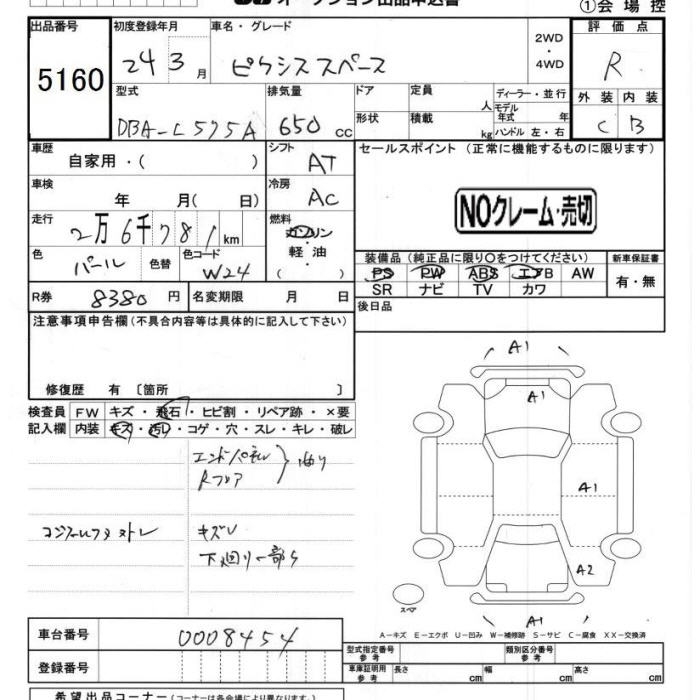 オークション出品申込書
①会場控
出品番号
5160
初度登録年月
24 3 月
車名・グレード
ピクシススペース
2WD
・
4WD
評価点
R
外装 内装
C B
型式
DBA-L575A
排気量
650 cc
ドア
形状
定員
人
積載
kg
ディーラー・並行
モデル
年式 年
ハンドル 左・右
車歴
自家用・( )
シフト
AT
セールスポイント (正常に機能するものに限ります)
車検
年 月( 日)
冷房
AC
NOクレーム・売切
走行
2万6千781km
燃料
ガソリン
軽・油
( )
色
パール
色替
色コード
W24
装備品 (純正品に限り○をつけてください)
新車保証書
PS PW ABS エアB AW
SR ナビ TV カワ
有・無
R券 8380 円
名変期限 月 日
後日品
注意事項申告欄(不具合内容等は具体的に記入して下さい)
修復歴 有 〔箇所 〕
検査員 FW キズ・飛石・ヒビ割・リペア跡・×要
記入欄 内装 キズ・汚レ・コゲ・穴・スレ・キレ・破レ
エンドパネル
Rフロア
キズU
下廻り一部S
A1
A1
A1
A2
A1
スペア
A-キズ E-エクボ U-凹み W-補修跡 S-サビ C-腐食 XX-交換済
車台番号
0008454
登録番号
型式指定番号
参考
類別区分番号
参考
車庫証明用
参考
長さ cm 幅 cm 高さ cm
希望出品コーナー(コーナーは各会場により異なります)